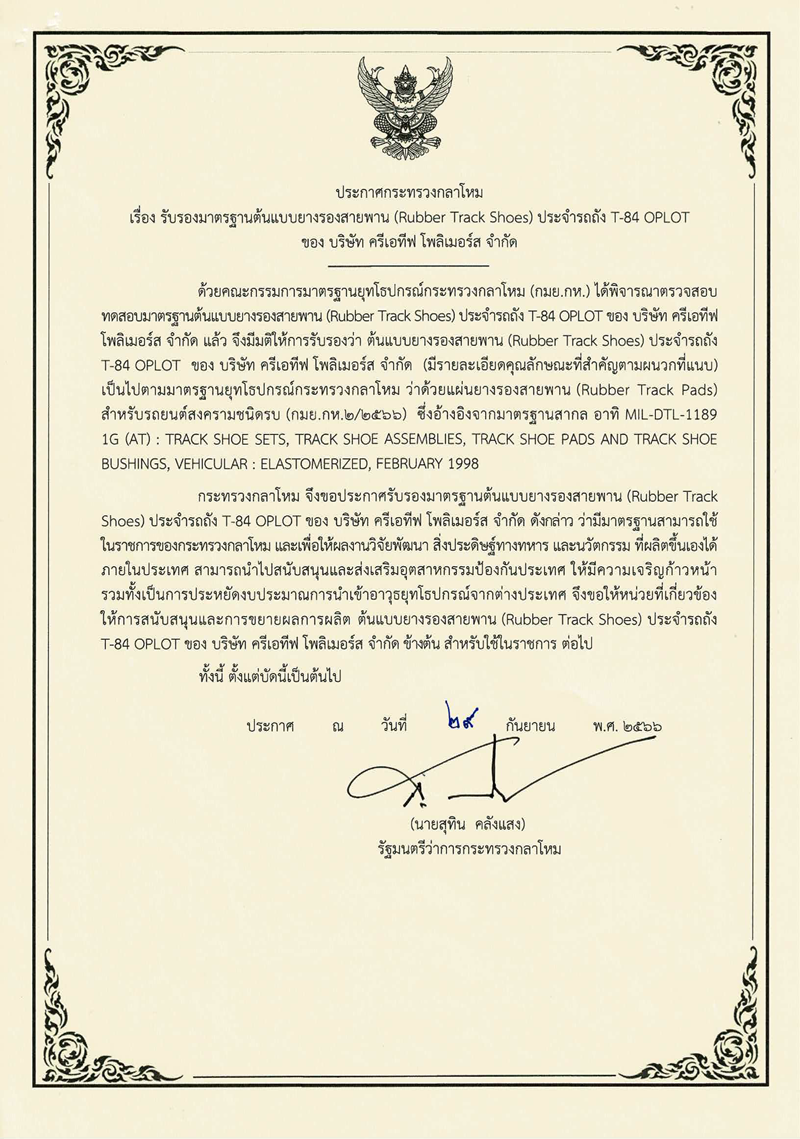 ประกาศกระทรวงกลาโหม
เรื่อง รับรองมาตรฐานต้นแบบยางรองสายพาน (Rubber Track Shoes) ประจำรถถัง T-84 OPLOT
ของ บริษัท ครีเอทีฟ โพลิเมอร์ส จำกัด
ด้วยคณะกรรมการมาตรฐานยุทโธปกรณ์กระทรวงกลาโหม (กมย.กห.) ได้พิจารณาตรวจสอบ
ทดสอบมาตรฐานต้นแบบยางรองสายพาน (Rubber Track Shoes) ประจำรถถัง T-84 OPLOT ของ บริษัท ครีเอทีฟ
โพลิเมอร์ส จำกัด แล้ว จึงมีมติให้การรับรองว่า ต้นแบบยางรองสายพาน (Rubber Track Shoes) ประจำรถถัง
T-84 OPLOT ของ บริษัท ครีเอทีฟ โพลิเมอร์ส จำกัด (มีรายละเอียดคุณลักษณะที่สำคัญตามผนวกที่แนบ)
เป็นไปตามมาตรฐานยุทโธปกรณ์กระทรวงกลาโหม ว่าด้วยแผ่นยางรองสายพาน (Rubber Track Pads)
สำหรับรถยนต์สงครามชนิดรบ (กมย.กห.๒/๒๕๖๖) ซึ่งอ้างอิงจากมาตรฐานสากล อาทิ MIL-DTL-1189
1G (AT) : TRACK SHOE SETS, TRACK SHOE ASSEMBLIES, TRACK SHOE PADS AND TRACK SHOE
BUSHINGS, VEHICULAR : ELASTOMERIZED, FEBRUARY 1998
กระทรวงกลาโหม จึงขอประกาศรับรองมาตรฐานต้นแบบยางรองสายพาน (Rubber Track
Shoes) ประจำรถถัง T-84 OPLOT ของ บริษัท ครีเอทีฟ โพลิเมอร์ส จำกัด ดังกล่าว ว่ามีมาตรฐานสามารถใช้
ในราชการของกระทรวงกลาโหม และเพื่อให้ผลงานวิจัยพัฒนา สิ่งประดิษฐ์ทางทหาร และนวัตกรรม ที่ผลิตขึ้นเองได้
ภายในประเทศ สามารถนำไปสนับสนุนและส่งเสริมอุตสาหกรรมป้องกันประเทศ ให้มีความเจริญก้าวหน้า
รวมทั้งเป็นการประหยัดงบประมาณการนำเข้าอาวุธยุทโธปกรณ์จากต่างประเทศ จึงขอให้หน่วยที่เกี่ยวข้อง
ให้การสนับสนุนและการขยายผลการผลิต ต้นแบบยางรองสายพาน (Rubber Track Shoes) ประจำรถถัง
T-84 OPLOT ของ บริษัท ครีเอทีฟ โพลิเมอร์ส จำกัด ข้างต้น สำหรับใช้ในราชการ ต่อไป
ทั้งนี้ ตั้งแต่บัดนี้เป็นต้นไป
ประกาศ ณ วันที่ ๒๙ กันยายน พ.ศ. ๒๕๖๖
(นายสุทิน คลังแสง)
รัฐมนตรีว่าการกระทรวงกลาโหม